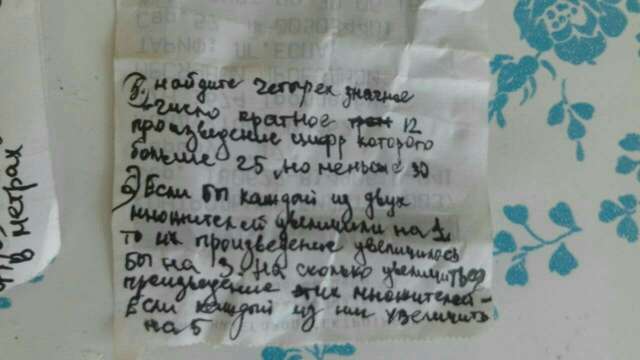 5. найдите четырех значное
число кратное 12
произведение цифр которого
больше 25, но меньше 30
6) Если бы каждый из двух
множителей увеличили на 1,
то их произведение увеличилось
бы на 3. На сколько увеличится
произведение этих множителей
Если каждый из них увеличить
на 5
в метрах